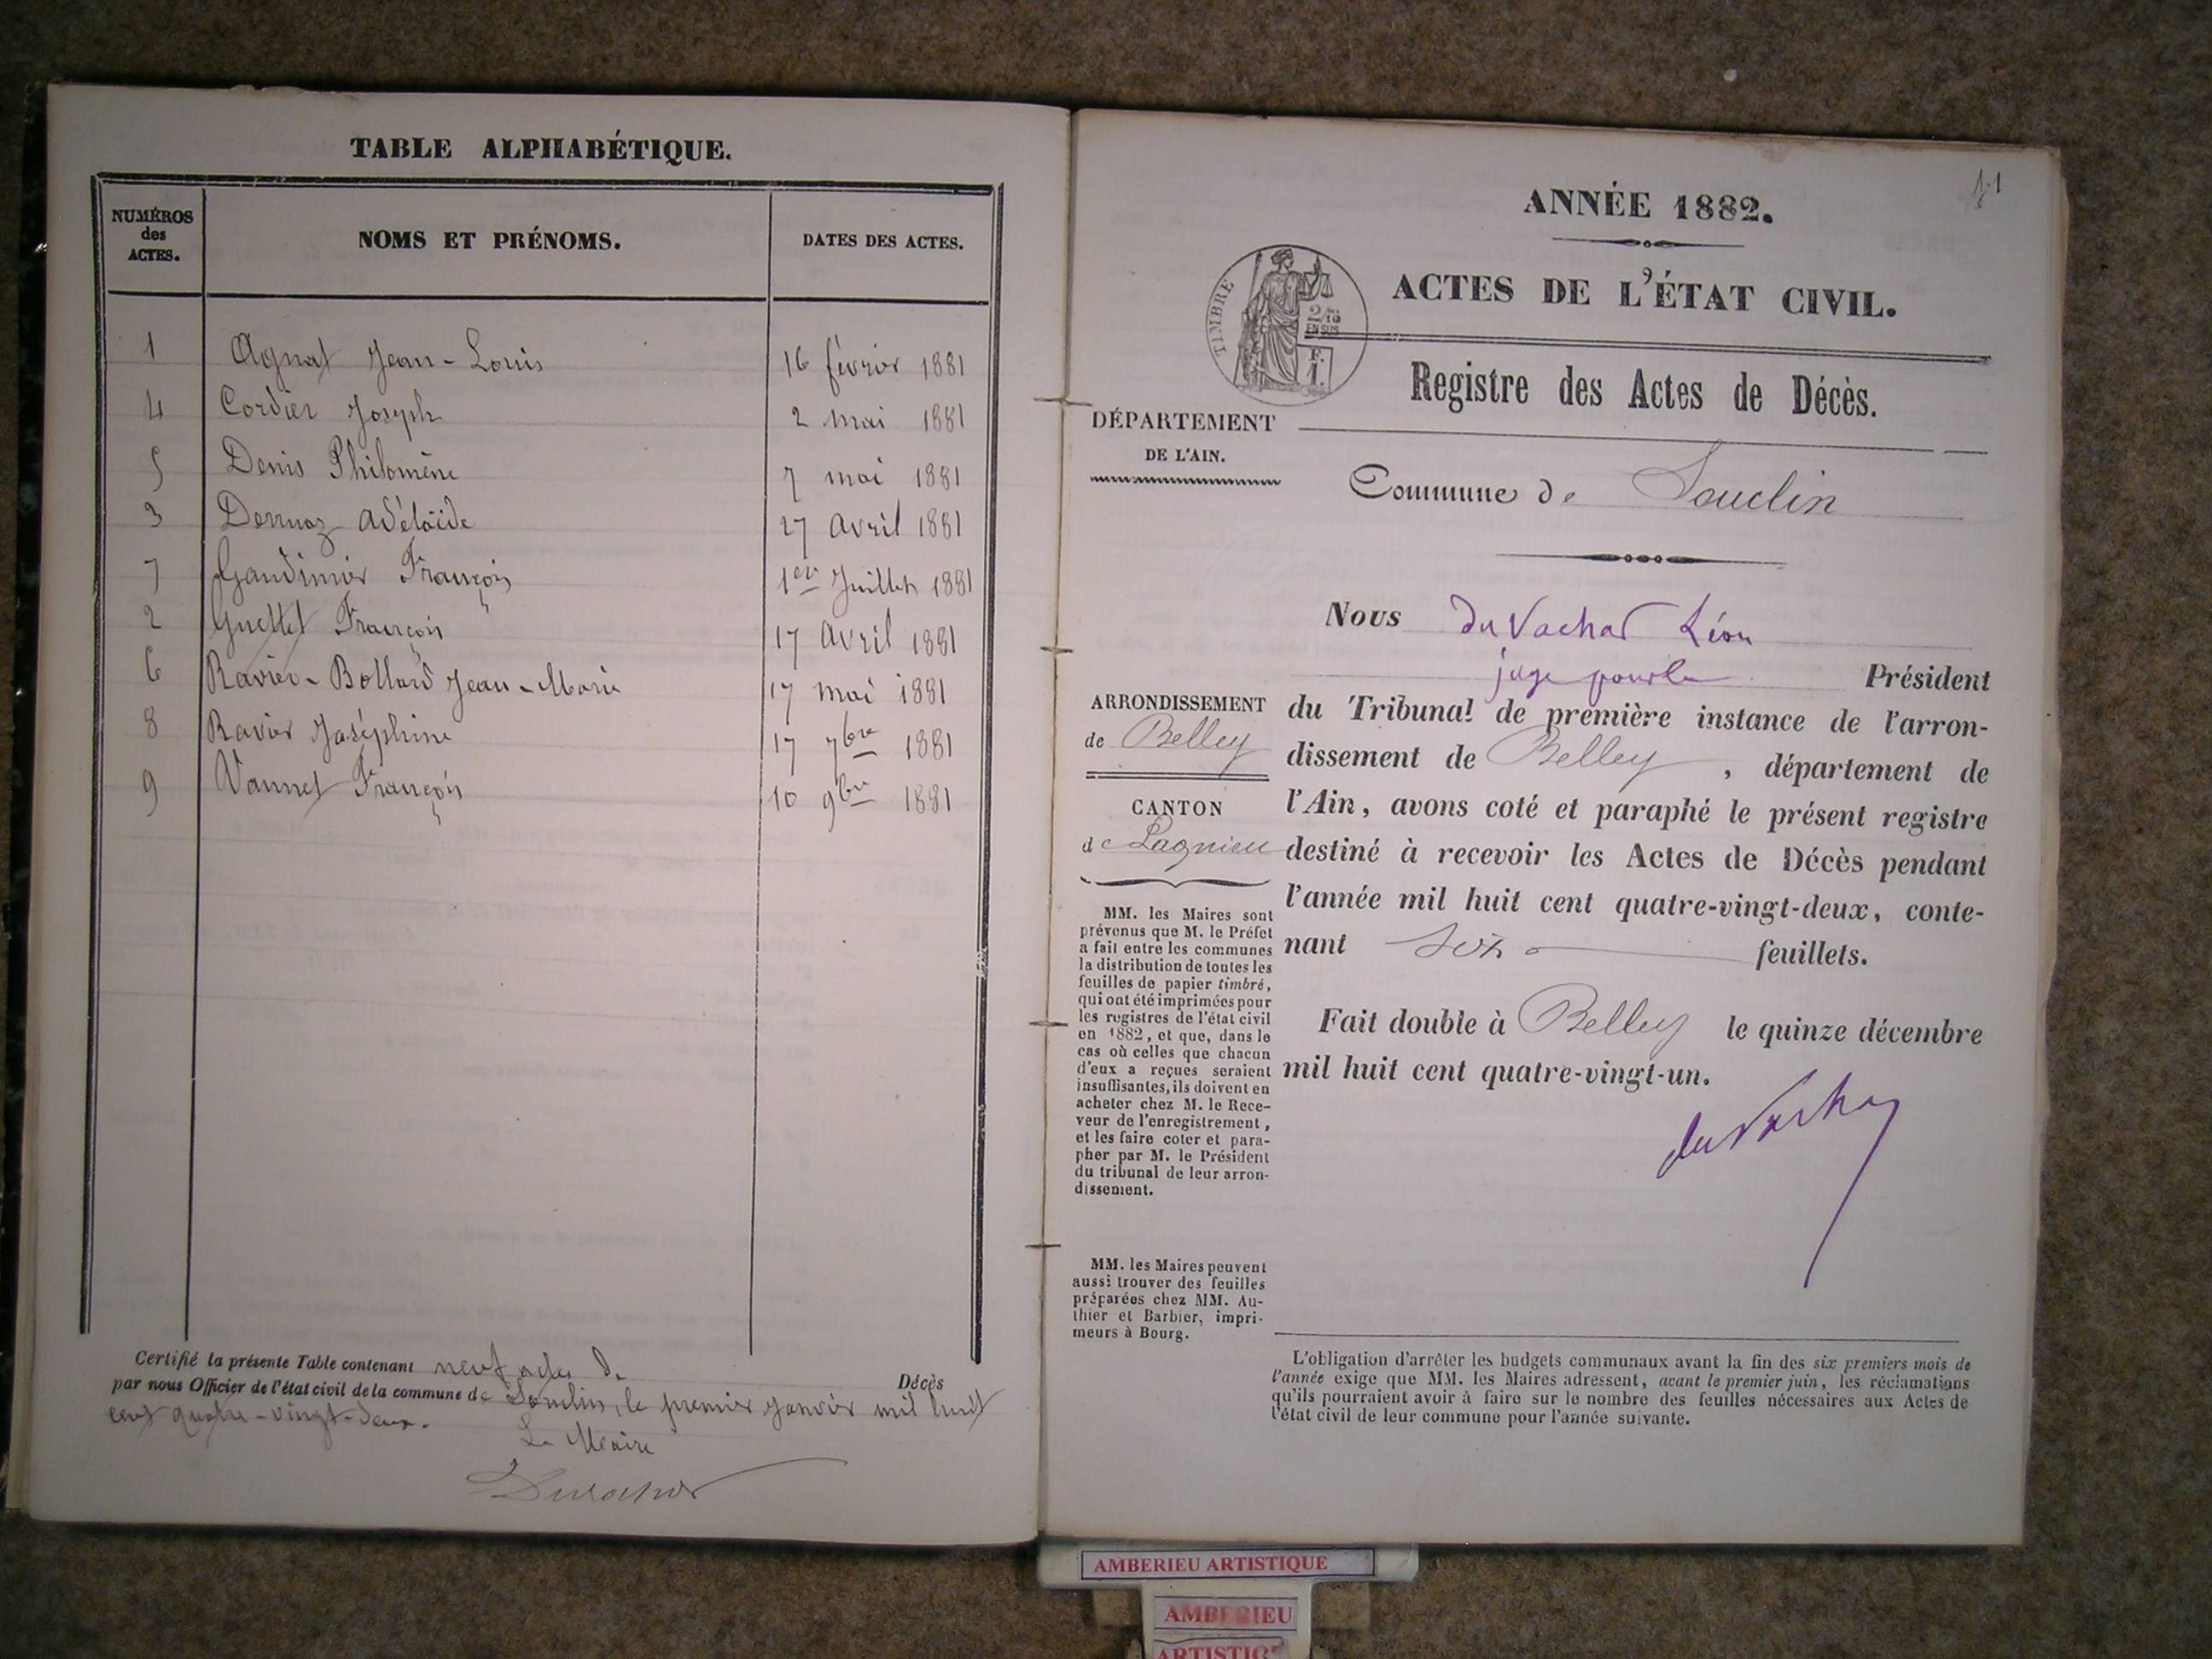 TABLE ALPHABÉTIQUE.
NUMÉROS des ACTES. NOMS ET PRÉNOMS. DATES DES ACTES.
1 Agnat Jean-Louis 16 février 1881
4 Cordier Joseph 2 mai 1881
5 Denis Philomène 7 mai 1881
3 Dernoz Adélaïde 27 avril 1881
7 Gaudimier François 1er Juillet 1881
2 Guettet François 17 avril 1881
6 Ravier-Bollard Jean-Marie 17 mai 1881
8 Ravier Joséphine 17 7bre 1881
9 Vannet François 10 9bre 1881
Certifié la présente Table contenant neuf actes de Décès
par nous Officier de l'état civil de la commune de Souclin, le premier janvier mil huit
cent quatre-vingt-deux.
Le Maire
ANNÉE 1882.
ACTES DE L'ÉTAT CIVIL.
TIMBRE
2/10
EN SUS
F.
1.
Registre des Actes de Décès.
DÉPARTEMENT
DE L'AIN.
Commune de Souclin
ARRONDISSEMENT
de Belley
CANTON
de Lagnieu
MM. les Maires sont
prévenus que M. le Préfet
a fait entre les communes
la distribution de toutes les
feuilles de papier timbré,
qui ont été imprimées pour
les registres de l'état civil
en 1882, et que, dans le
cas où celles que chacun
d'eux a reçues seraient
insuffisantes, ils doivent en
acheter chez M. le Rece-
veur de l'enregistrement,
et les faire coter et para-
pher par M. le Président
du tribunal de leur arron-
dissement.
MM. les Maires peuvent
aussi trouver des feuilles
préparées chez MM. Au-
thier et Barbier, impri-
meurs à Bourg.
Nous du Vachat Léon
juge pour le Président
du Tribunal de première instance de l'arron-
dissement de Belley, département de
l'Ain, avons coté et paraphé le présent registre
destiné à recevoir les Actes de Décès pendant
l'année mil huit cent quatre-vingt-deux, conte-
nant six feuillets.
Fait double à Belley le quinze décembre
mil huit cent quatre-vingt-un.
du Vachat
L'obligation d'arrêter les budgets communaux avant la fin des six premiers mois de
l'année exige que MM. les Maires adressent, avant le premier juin, les réclamations
qu'ils pourraient avoir à faire sur le nombre des feuilles nécessaires aux Actes de
l'état civil de leur commune pour l'année suivante.
AMBERIEU ARTISTIQUE
AMBERIEU